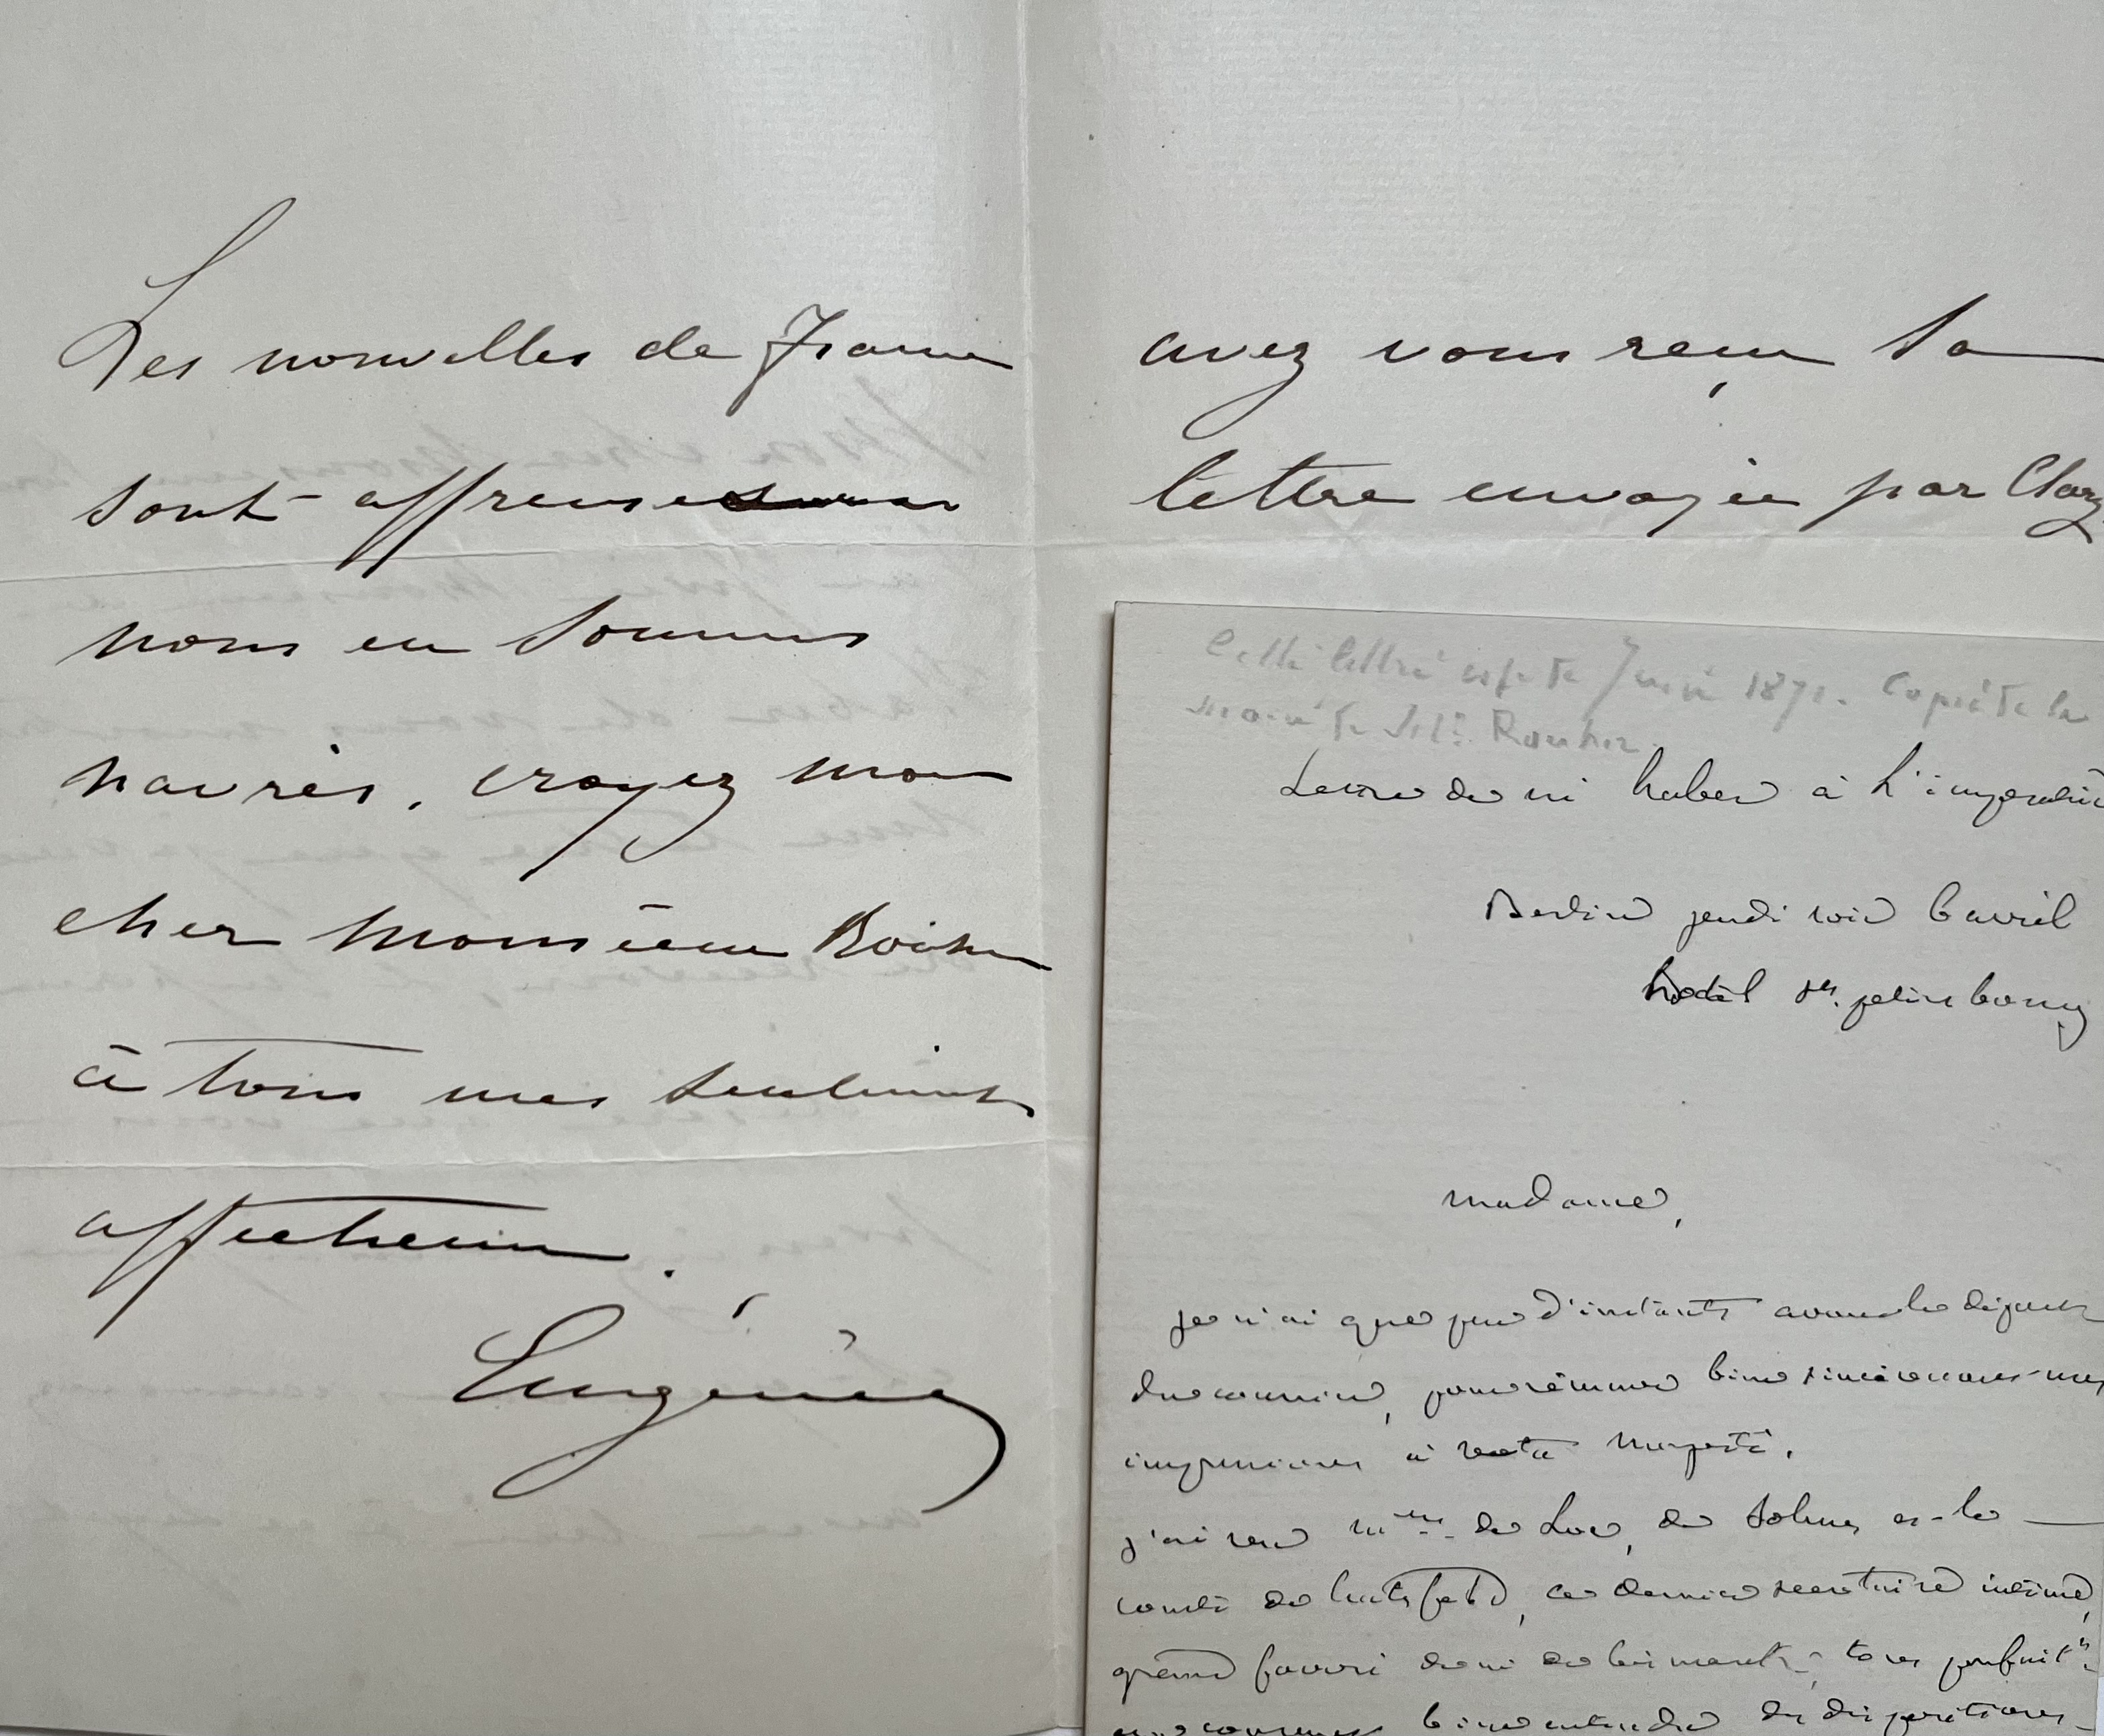 Les nouvelles de France
sont affreuses
nous en sommes
navrés, croyez mon
cher Monsieur Rouher
à tous mes sentiments
affectueux.
Eugénie
avez vous reçu la
lettre envoyée par Clary
Cette lettre est de 1871. Copie de la
main de Rouher.
Lettre de mr haber à L'impératrice
Berlin jeudi soir 6 avril
hotel st. petersbourg
Madame,
je n'ai que peu d'instants avant le départ
du courrier, pour résumer bien sincèrement mes
impressions à votre Majesté.
j'ai vu mrs. de Loe, de Solms et le
comte de hatzfeld, ce dernier secrétaire intime,
grand favori de mr de bismark; tous parfaitt
bien entendu des dispositions